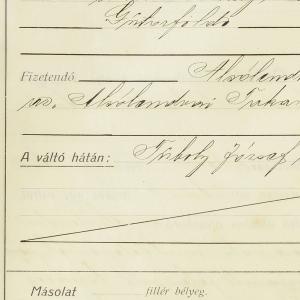 Gutorfölde
Fizetendő Alsólendva
az Alsólendvai Taka
A váltó hátán: Tüboly József
Másolat fillér bélyeg.